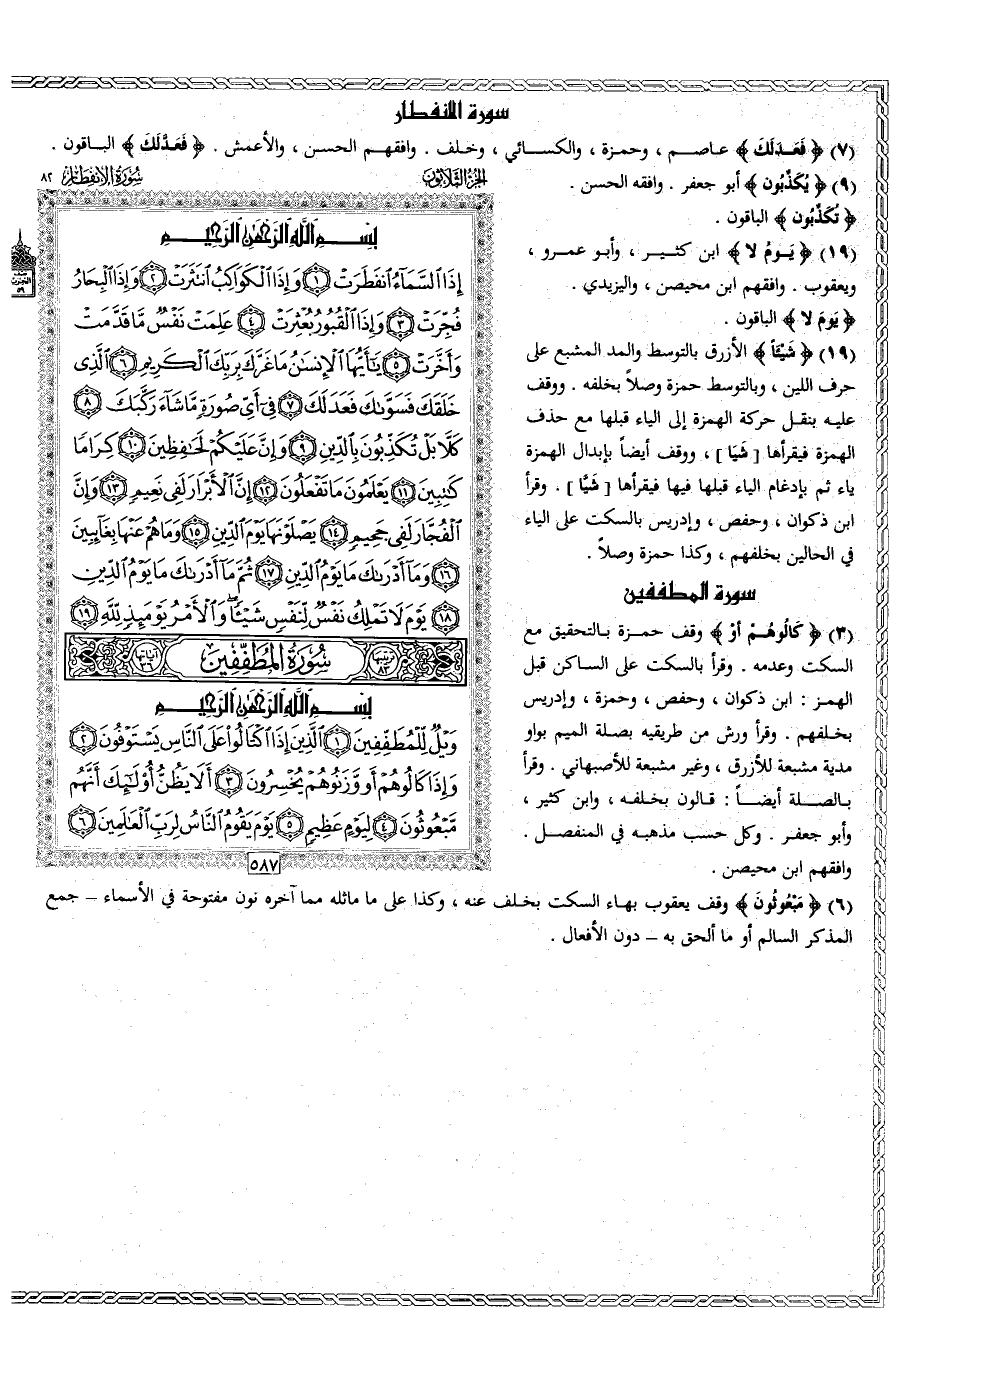 سورة الانفطار
(٧) ﴿ فَعَدَلَكَ ﴾ عاصم ، وحمزة ، والكسائي ، وخلف . وافقهم الحسن ، والأعمش . ﴿ فَعَدَّلَكَ ﴾ الباقون .
(٩) ﴿ يُكَذِّبُون ﴾ أبو جعفر . وافقه الحسن .
﴿ تُكَذِّبُون ﴾ الباقون .
(١٩) ﴿ يَومُ لا ﴾ ابن كثير ، وأبو عمرو ،
ويعقوب . وافقهم ابن محيصن ، واليزيدي .
﴿ يَومَ لا ﴾ الباقون .
(١٩) ﴿ شَيْئاً ﴾ الأزرق بالتوسط والمد المشبع على
حرف اللين ، وبالتوسط حمزة وصلاً بخلفه . ووقف
عليه بنقل حركة الهمزة إلى الياء قبلها مع حذف
الهمزة فيقرأها [ شَيَا ] ، ووقف أيضاً بإبدال الهمزة
ياء ثم بإدغام الياء قبلها فيها فيقرأها [ شَيًّا ] . وقرأ
ابن ذكوان ، وحفص ، وإدريس بالسكت على الياء
في الحالين بخلفهم ، وكذا حمزة وصلاً .
سورة المطففين
(٣) ﴿ كَالُوهُمْ أوْ ﴾ وقف حمزة بالتحقيق مع
السكت وعدمه . وقرأ بالسكت على الساكن قبل
الهمز : ابن ذكوان ، وحفص ، وحمزة ، وإدريس
بخلفهم . وقرأ ورش من طريقيه بصلة الميم بواو
مدية مشبعة للأزرق ، وغير مشبعة للأصبهاني . وقرأ
بالصلة أيضاً : قالون بخلفه ، وابن كثير ،
وأبو جعفر . وكل حسب مذهبه في المنفصل .
وافقهم ابن محيصن .
الجزء الثلاثون
سورة الانفطار ٨٢
بِسْمِ اللَّهِ الرَّحْمَٰنِ الرَّحِيمِ
إِذَا السَّمَاءُ انفَطَرَتْ ١ وَإِذَا الْكَوَاكِبُ انتَثَرَتْ ٢ وَإِذَا الْبِحَارُ
فُجِّرَتْ ٣ وَإِذَا الْقُبُورُ بُعْثِرَتْ ٤ عَلِمَتْ نَفْسٌ مَّا قَدَّمَتْ
وَأَخَّرَتْ ٥ يَٰأَيُّهَا الْإِنسَٰنُ مَا غَرَّكَ بِرَبِّكَ الْكَرِيمِ ٦ الَّذِي
خَلَقَكَ فَسَوَّىٰكَ فَعَدَلَكَ ٧ فِي أَيِّ صُورَةٍ مَّا شَاءَ رَكَّبَكَ ٨
كَلَّا بَلْ تُكَذِّبُونَ بِالدِّينِ ٩ وَإِنَّ عَلَيْكُمْ لَحَٰفِظِينَ ١٠ كِرَامًا
كَٰتِبِينَ ١١ يَعْلَمُونَ مَا تَفْعَلُونَ ١٢ إِنَّ الْأَبْرَارَ لَفِي نَعِيمٍ ١٣ وَإِنَّ
الْفُجَّارَ لَفِي جَحِيمٍ ١٤ يَصْلَوْنَهَا يَوْمَ الدِّينِ ١٥ وَمَا هُمْ عَنْهَا بِغَائِبِينَ
١٦ وَمَا أَدْرَىٰكَ مَا يَوْمُ الدِّينِ ١٧ ثُمَّ مَا أَدْرَىٰكَ مَا يَوْمُ الدِّينِ
١٨ يَوْمَ لَا تَمْلِكُ نَفْسٌ لِّنَفْسٍ شَيْئًا وَالْأَمْرُ يَوْمَئِذٍ لِّلَّهِ ١٩
ترتيبها ٨٣ سُورَةُ المُطَفِّفِينَ آياتها ٣٦
بِسْمِ اللَّهِ الرَّحْمَٰنِ الرَّحِيمِ
وَيْلٌ لِّلْمُطَفِّفِينَ ١ الَّذِينَ إِذَا اكْتَالُوا عَلَى النَّاسِ يَسْتَوْفُونَ ٢
وَإِذَا كَالُوهُمْ أَو وَّزَنُوهُمْ يُخْسِرُونَ ٣ أَلَا يَظُنُّ أُولَٰئِكَ أَنَّهُم
مَّبْعُوثُونَ ٤ لِيَوْمٍ عَظِيمٍ ٥ يَوْمَ يَقُومُ النَّاسُ لِرَبِّ الْعَالَمِينَ ٦
٥٨٧
(٦) ﴿ مَبْعُوثُونَ ﴾ وقف يعقوب بهاء السكت بخلف عنه ، وكذا على ما ماثله مما آخره نون مفتوحة في الأسماء – جمع
المذكر السالم أو ما ألحق به – دون الأفعال .